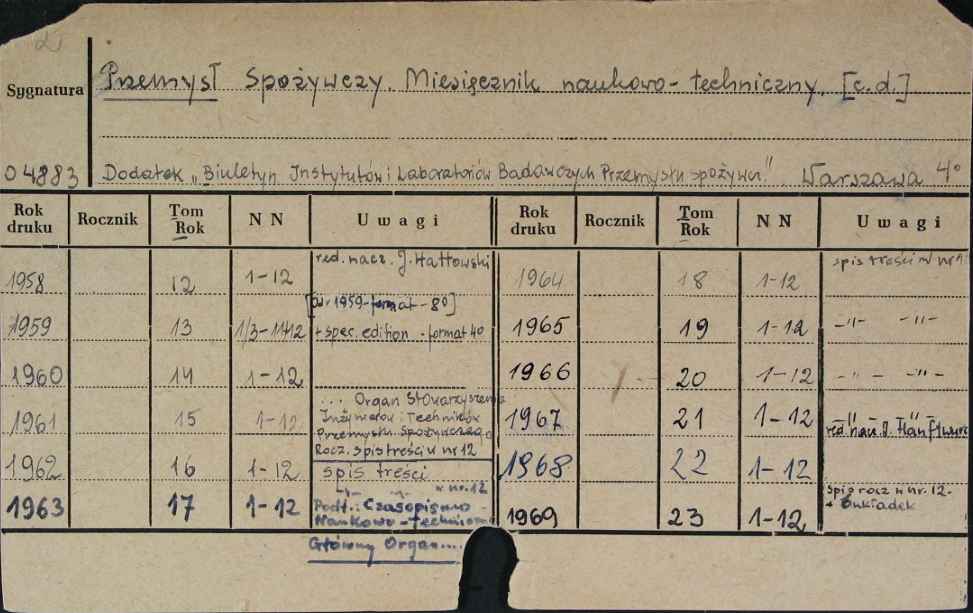 Sygnatura Przemysł Spożywczy. Miesięcznik naukowo-techniczny. [c.d.]
04883 Dodatek „Biuletyn Instytutów i Laboratoriów Badawczych Przemysłu spożyw." Warszawa 4°
Rok druku Rocznik Tom Rok NN Uwagi Rok druku Rocznik Tom Rok NN Uwagi
1958 12 1-12 red. nacz. J. 1964 18 1-12 spis treści w nr 1
[od 1959-format-8°]
1959 13 + spec. edition - format 4° 1965 19 1-12 -"- -"-
1960 14 1-12 1966 20 1-12 -"- -"-
... Organ Stowarzyszenia
1961 15 1-12 Inżynierów i Techników 1967 21 1-12 -"- -"-
Przemysłu Spożywczego red. nacz. J.
Rocz. spis treści w nr 12
1962 16 1-12 spis treści 1968 22 1-12
-"- -"- w nr. 12
1963 17 1-12 Podt.: Czasopismo Naukowo-Techniczne 1969 23 1-12 spis rocz w nr 12. + okładek
Główny Organ....